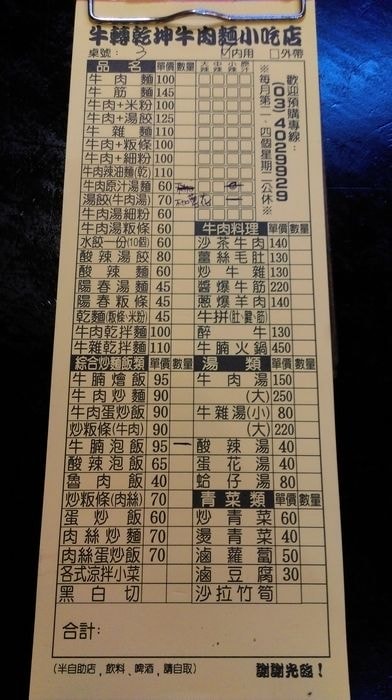 牛轉乾坤牛肉麵小吃店
桌號: 3 ☑內用 □外帶
品名 單價 數量 大辣 中辣 小辣 原汁
牛肉麵 100
牛筋麵 145
牛肉+米粉 100
牛肉+湯餃 125
牛雜麵 110
牛肉+粄條 100
牛肉+細粉 100
牛肉辣油麵(乾) 110
牛肉原汁湯麵 60
湯餃(牛肉湯) 70
牛肉湯細粉 60
牛肉湯粄條 60
水餃一份(10個) 60
酸辣湯餃 80
酸辣麵 60
陽春湯麵 45
陽春粄條 45
乾麵(粄條‧米粉) 45
牛肉乾拌麵 100
牛雜乾拌麵 110
歡迎預購專線:
(03)4029929
※每月第二、四個星期二公休※
牛肉料理 單價 數量
沙茶牛肉 140
薑絲毛肚 130
炒牛雜 130
醬爆牛筋 220
蔥爆羊肉 140
牛拼(肚‧腱‧筋)
醉牛 130
牛腩火鍋 450
綜合炒麵飯類 單價 數量
牛腩燴飯 95
牛肉炒麵 90
牛肉蛋炒飯 90
炒粄條(牛肉) 90
牛腩泡飯 95 一
酸辣泡飯 65
魯肉飯 40
炒粄條(肉絲) 70
蛋炒飯 60
肉絲炒麵 70
肉絲蛋炒飯 70
各式涼拌小菜
黑白切
湯類 單價 數量
牛肉湯 150
(大) 250
牛雜湯(小) 80
(大) 220
酸辣湯 40
蛋花湯 40
蛤仔湯 80
青菜類 單價 數量
炒青菜 60
燙青菜 40
滷蘿蔔 50
滷豆腐 30
沙拉竹筍
合計:
(半自助店,飲料、啤酒,請自取) 謝謝光臨!